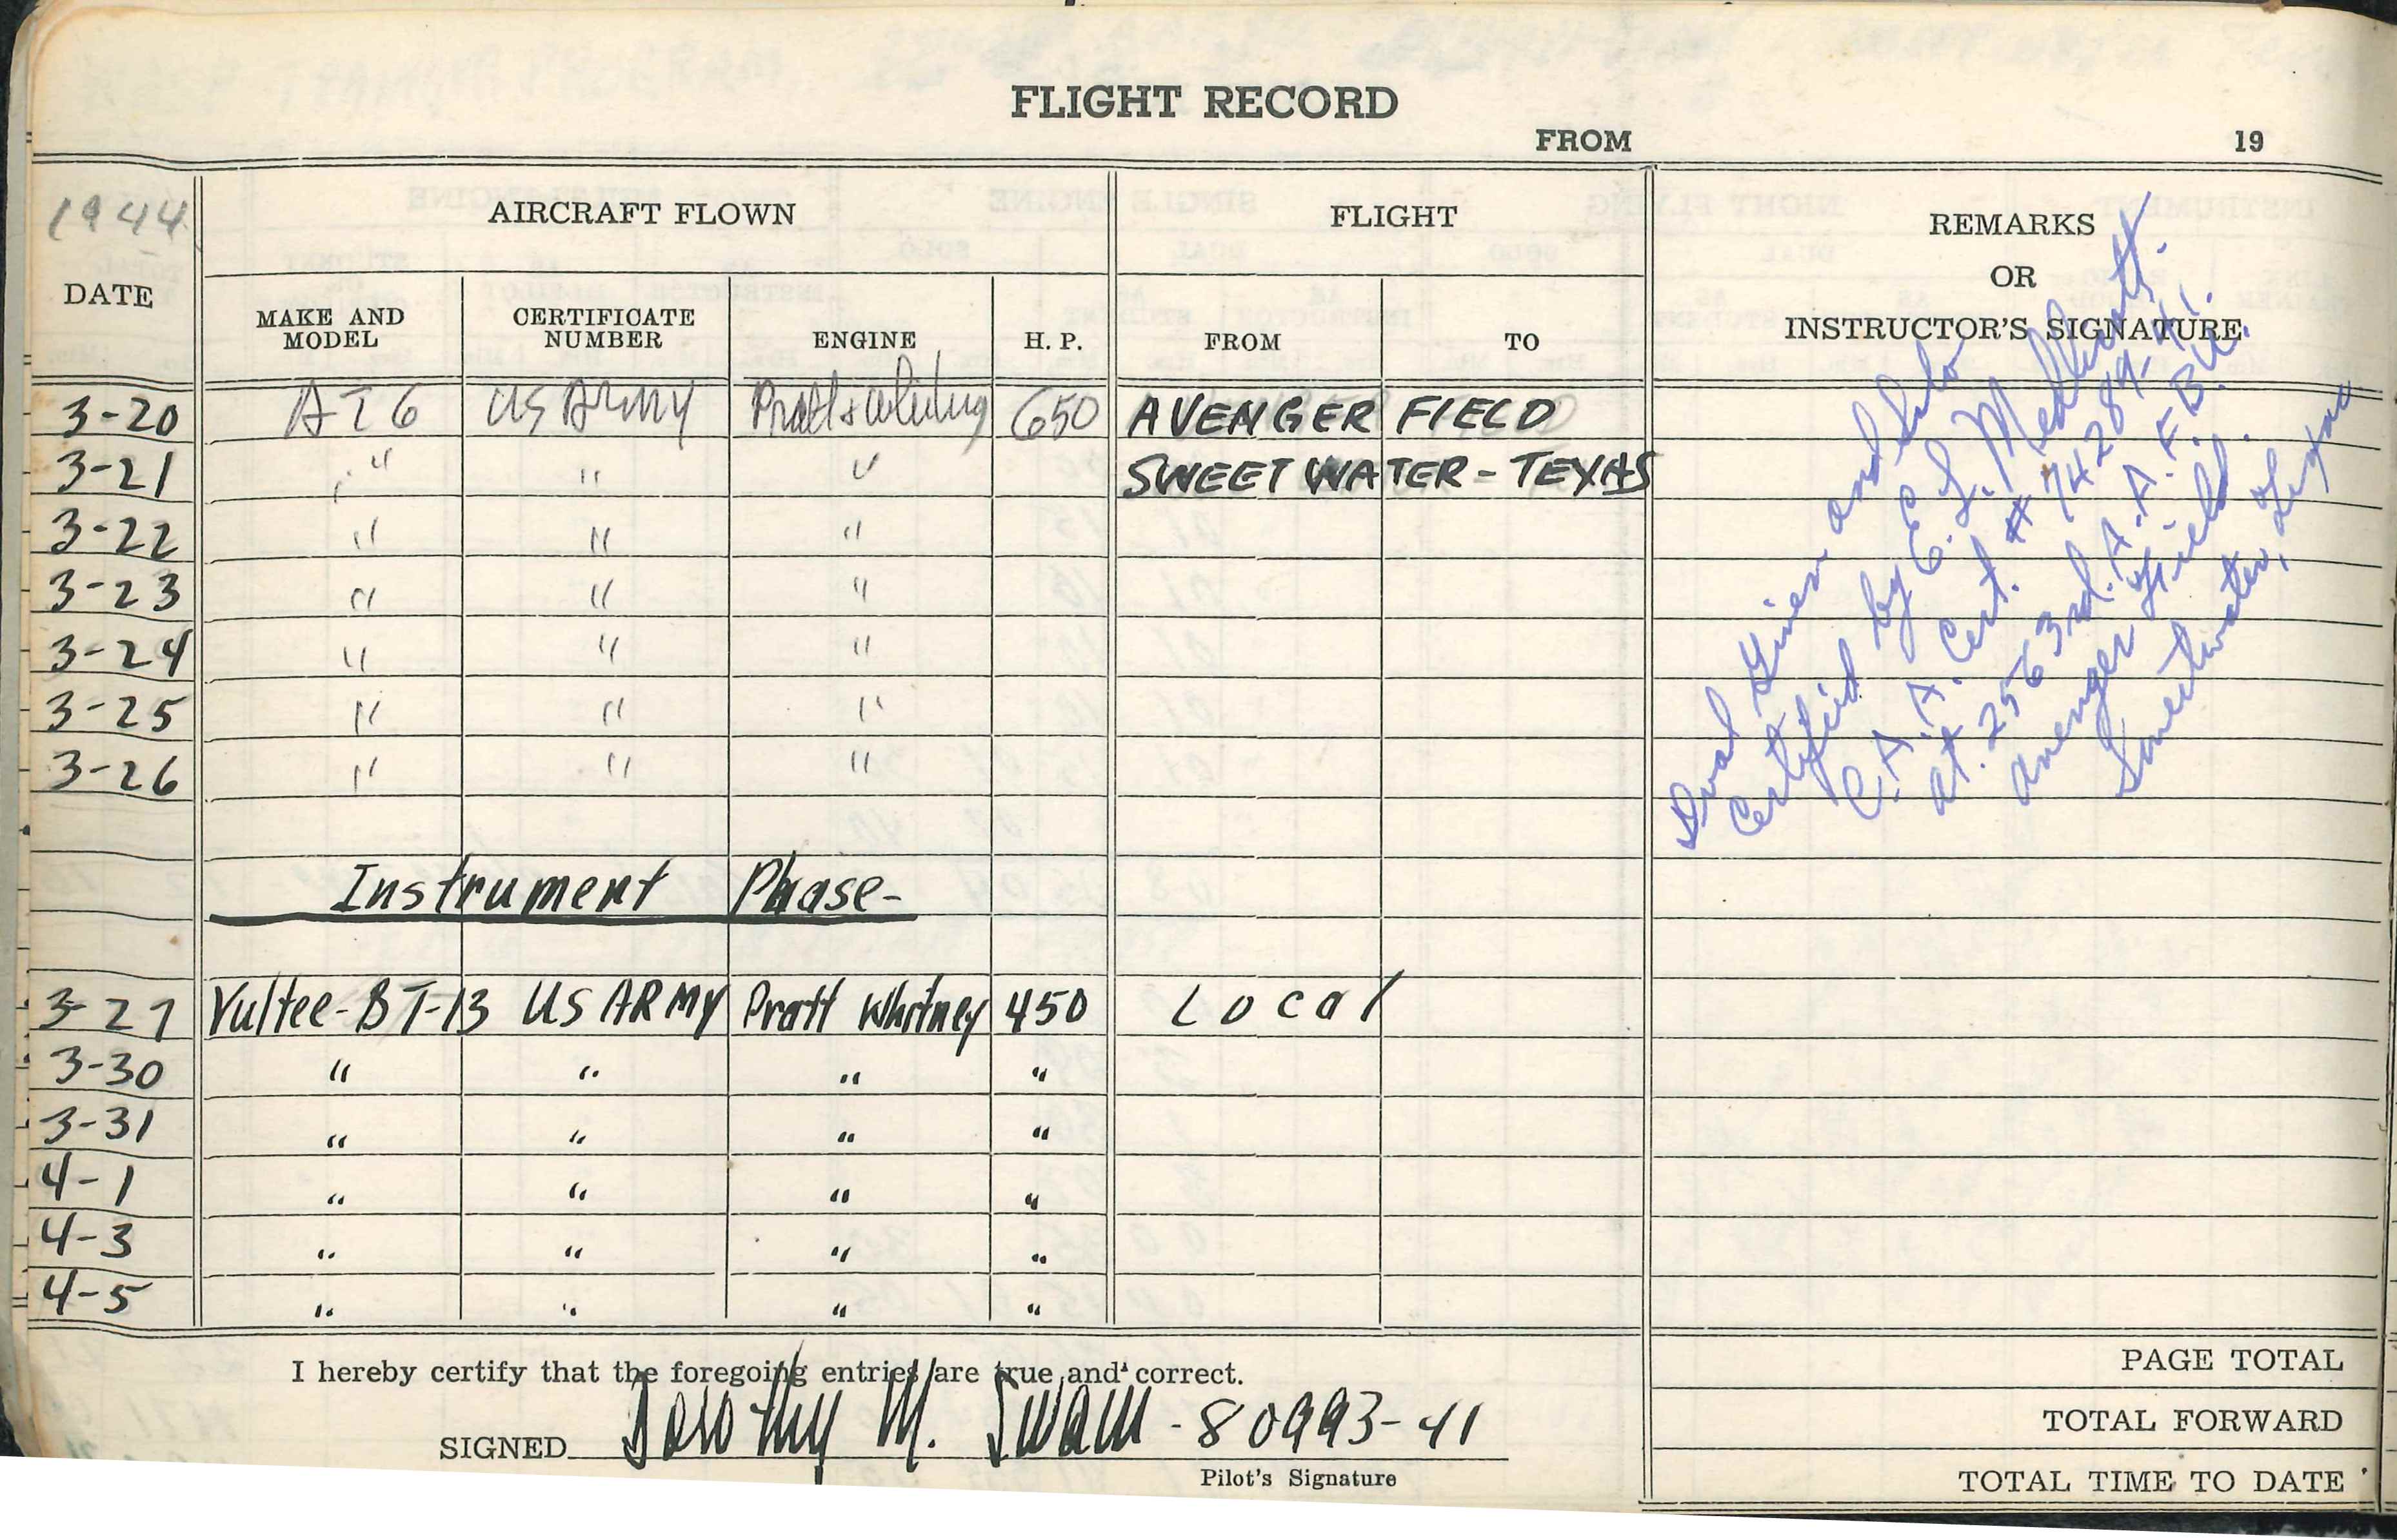 FLIGHT RECORD
FROM 19
1944
DATE
AIRCRAFT FLOWN
FLIGHT
REMARKS
OR
INSTRUCTOR'S SIGNATURE
MAKE AND
MODEL
CERTIFICATE
NUMBER
ENGINE
H. P.
FROM
TO
3-20 AT6 US ARMY Pratt & Whitney 650 AVENGER FIELD
3-21 " " " SWEETWATER - TEXAS
3-22 " " "
3-23 " " "
3-24 " " "
3-25 " " "
3-26 " " "
Dual Given and Solo
Certified by E. J.
C. A. A. Cert. # 74289-41.
at. 2563rd. A. A. F. B. U.
Avenger Field.
Sweetwater, Texas
Instrument Phase-
3-27 Vultee-BT-13 US ARMY Pratt Whitney 450 Local
3-30 " " " "
3-31 " " " "
4-1 " " " "
4-3 " " " "
4-5 " " " "
I hereby certify that the foregoing entries are true and correct.
SIGNED Dorothy M. Swain - 80993-41
Pilot's Signature
PAGE TOTAL
TOTAL FORWARD
TOTAL TIME TO DATE